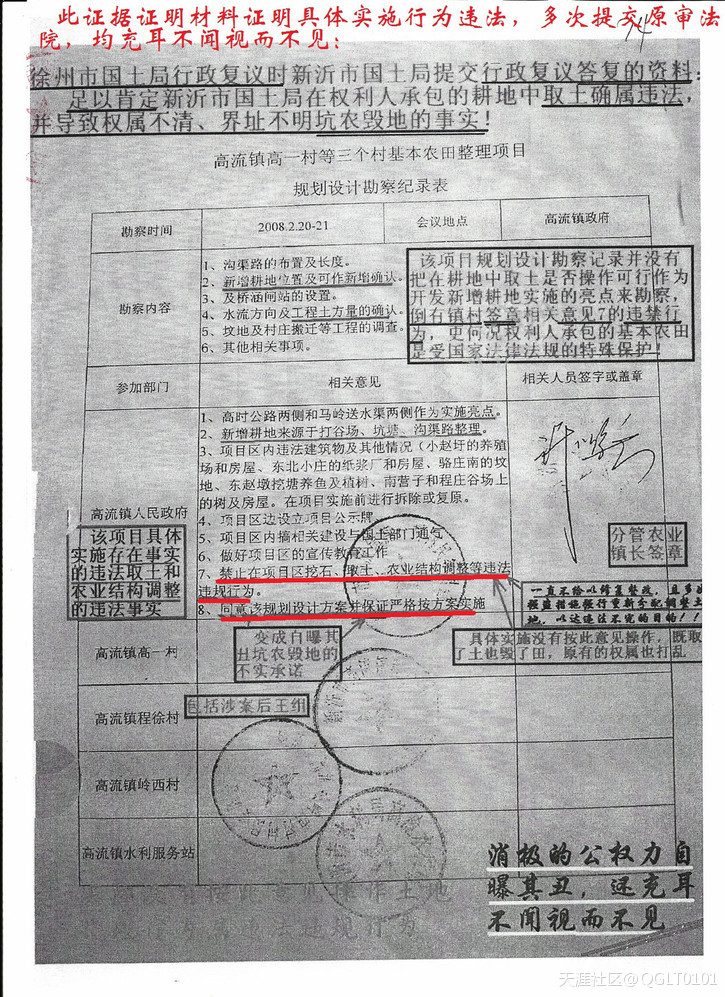 此证据证明材料证明具体实施行为违法，多次提交原审法
院，均充耳不闻视而不见：
14
徐州市国土局行政复议时新沂市国土局提交行政复议答复的资料：
足以肯定新沂市国土局在权利人承包的耕地中取土确属违法，
并导致权属不清、界址不明坑农毁地的事实！
高流镇高一村等三个村基本农田整理项目
规划设计勘察纪录表
勘察时间
2008.2.20-21
会议地点
高流镇政府
勘察内容
1、沟渠路的布置及长度。
2、新增耕地位置及可作新增确认。
3、及桥涵闸站的设置。
4、水流方向及工程土方量的确认。
5、坟地及村庄搬迁等工程的调查。
6、其他相关事项。
该项目规划设计勘察记录并没有
把在耕地中取土是否操作可行作为
开发新增耕地实施的亮点来勘察，
倒有镇村签章相关意见7的违禁行
为，史何况权利人承包的基本农田
是受国家法律法规的特殊保护！
参加部门
相关意见
相关人员签字或盖章
高流镇人民政府
1、高时公路两侧和马岭送水渠两侧作为实施亮点。
2、新增耕地来源于打谷场、坑塘、沟渠路整理。
3、项目区内违法建筑物及其他情况（小赵圩的养殖
场和房屋、东北小庄的纸浆厂和房屋、骆庄南的坟
地、东赵墩挖塘养鱼及植树、南营子和程庄谷场上
的树及房屋。在项目实施前进行拆除或复原。
4、项目区边设立项目公示牌
5、项目区内搞相关建设与国土部门通气
6、做好项目区的宣传教育工作
7、禁止在项目区挖石、取土、农业结构调整等违法
违规行为。
8、同意该规划设计方案并保证严格按方案实施
该项目具体
实施存在事实
的违法取土和
农业结构调整
的违法事实
分管农业
镇长签章
一直不给以修复整改，且多次
强蛊措施强行重新分配调整土
地，以达违法不究的目的！！
变成自曝其
丑坑农毁地的
不实承诺
具体实施没有按此意见操作，既取
了土也毁了田，原有的权属也打乱
高流镇高一村
包括涉案后王组
高流镇程徐村
高流镇岭西村
高流镇水利服务站
消极的公权力自
曝其丑，还充耳
不闻视而不见
天涯社区@QGLT0101